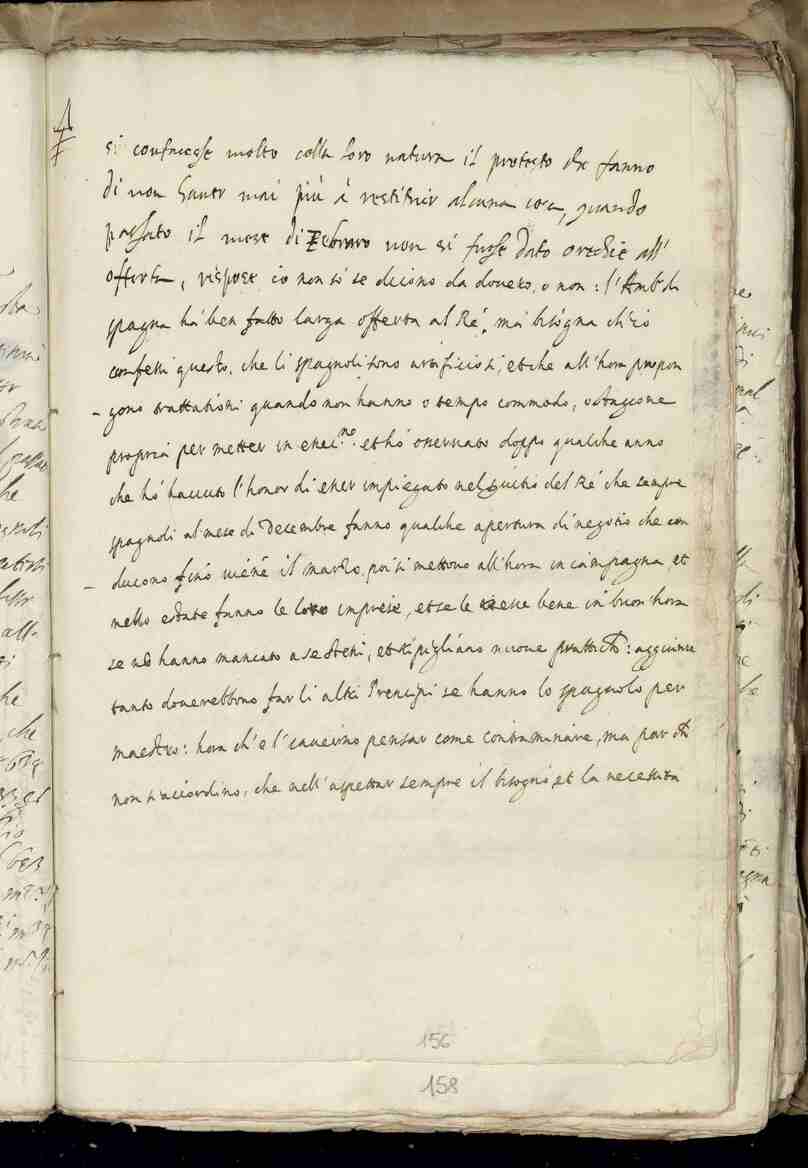 si confacesse molto colla loro natura il protesto che fanno
di non hauer mai più à restituir alcuna cosa, quando
passato il mese di Febraro non si fusse dato orechie all'
offerta, rispose io non sò se dicono da douero, o non: l'Amb.r di
spagna hà ben fatto larga offerta al Ré, mà bisogna ch'io
confessi questo, che li spagnoli sono artificiosi, et che all'hora propon
gono trattationi quando non hanno o tempo commodo, o stagione
propria per metter in essec.ne et hò osseruato doppo qualche anno
che hò hauuto l'honor di esser impiegato nel seruitio del Ré che sempre
spagnoli al mese di Decembre fanno qualche apertura di negotio che con
ducono finò uiene il marzo, poi si mettono all'hora in campagna, et
nello estate fanno le loro imprese, et se le riesse bene in buon'hora
se nò hanno mancato a se stessi, et ripigliano nuoue prattiche: aggiunse
tanto douerebbono far li altri Prencipi se hanno lo spagnolo per
maestro: hora ch'è l'inuerno pensar come contraminare, ma par che
non s'accordino, che nell'aspettar sempre il bisogno, et la necessità
156
158